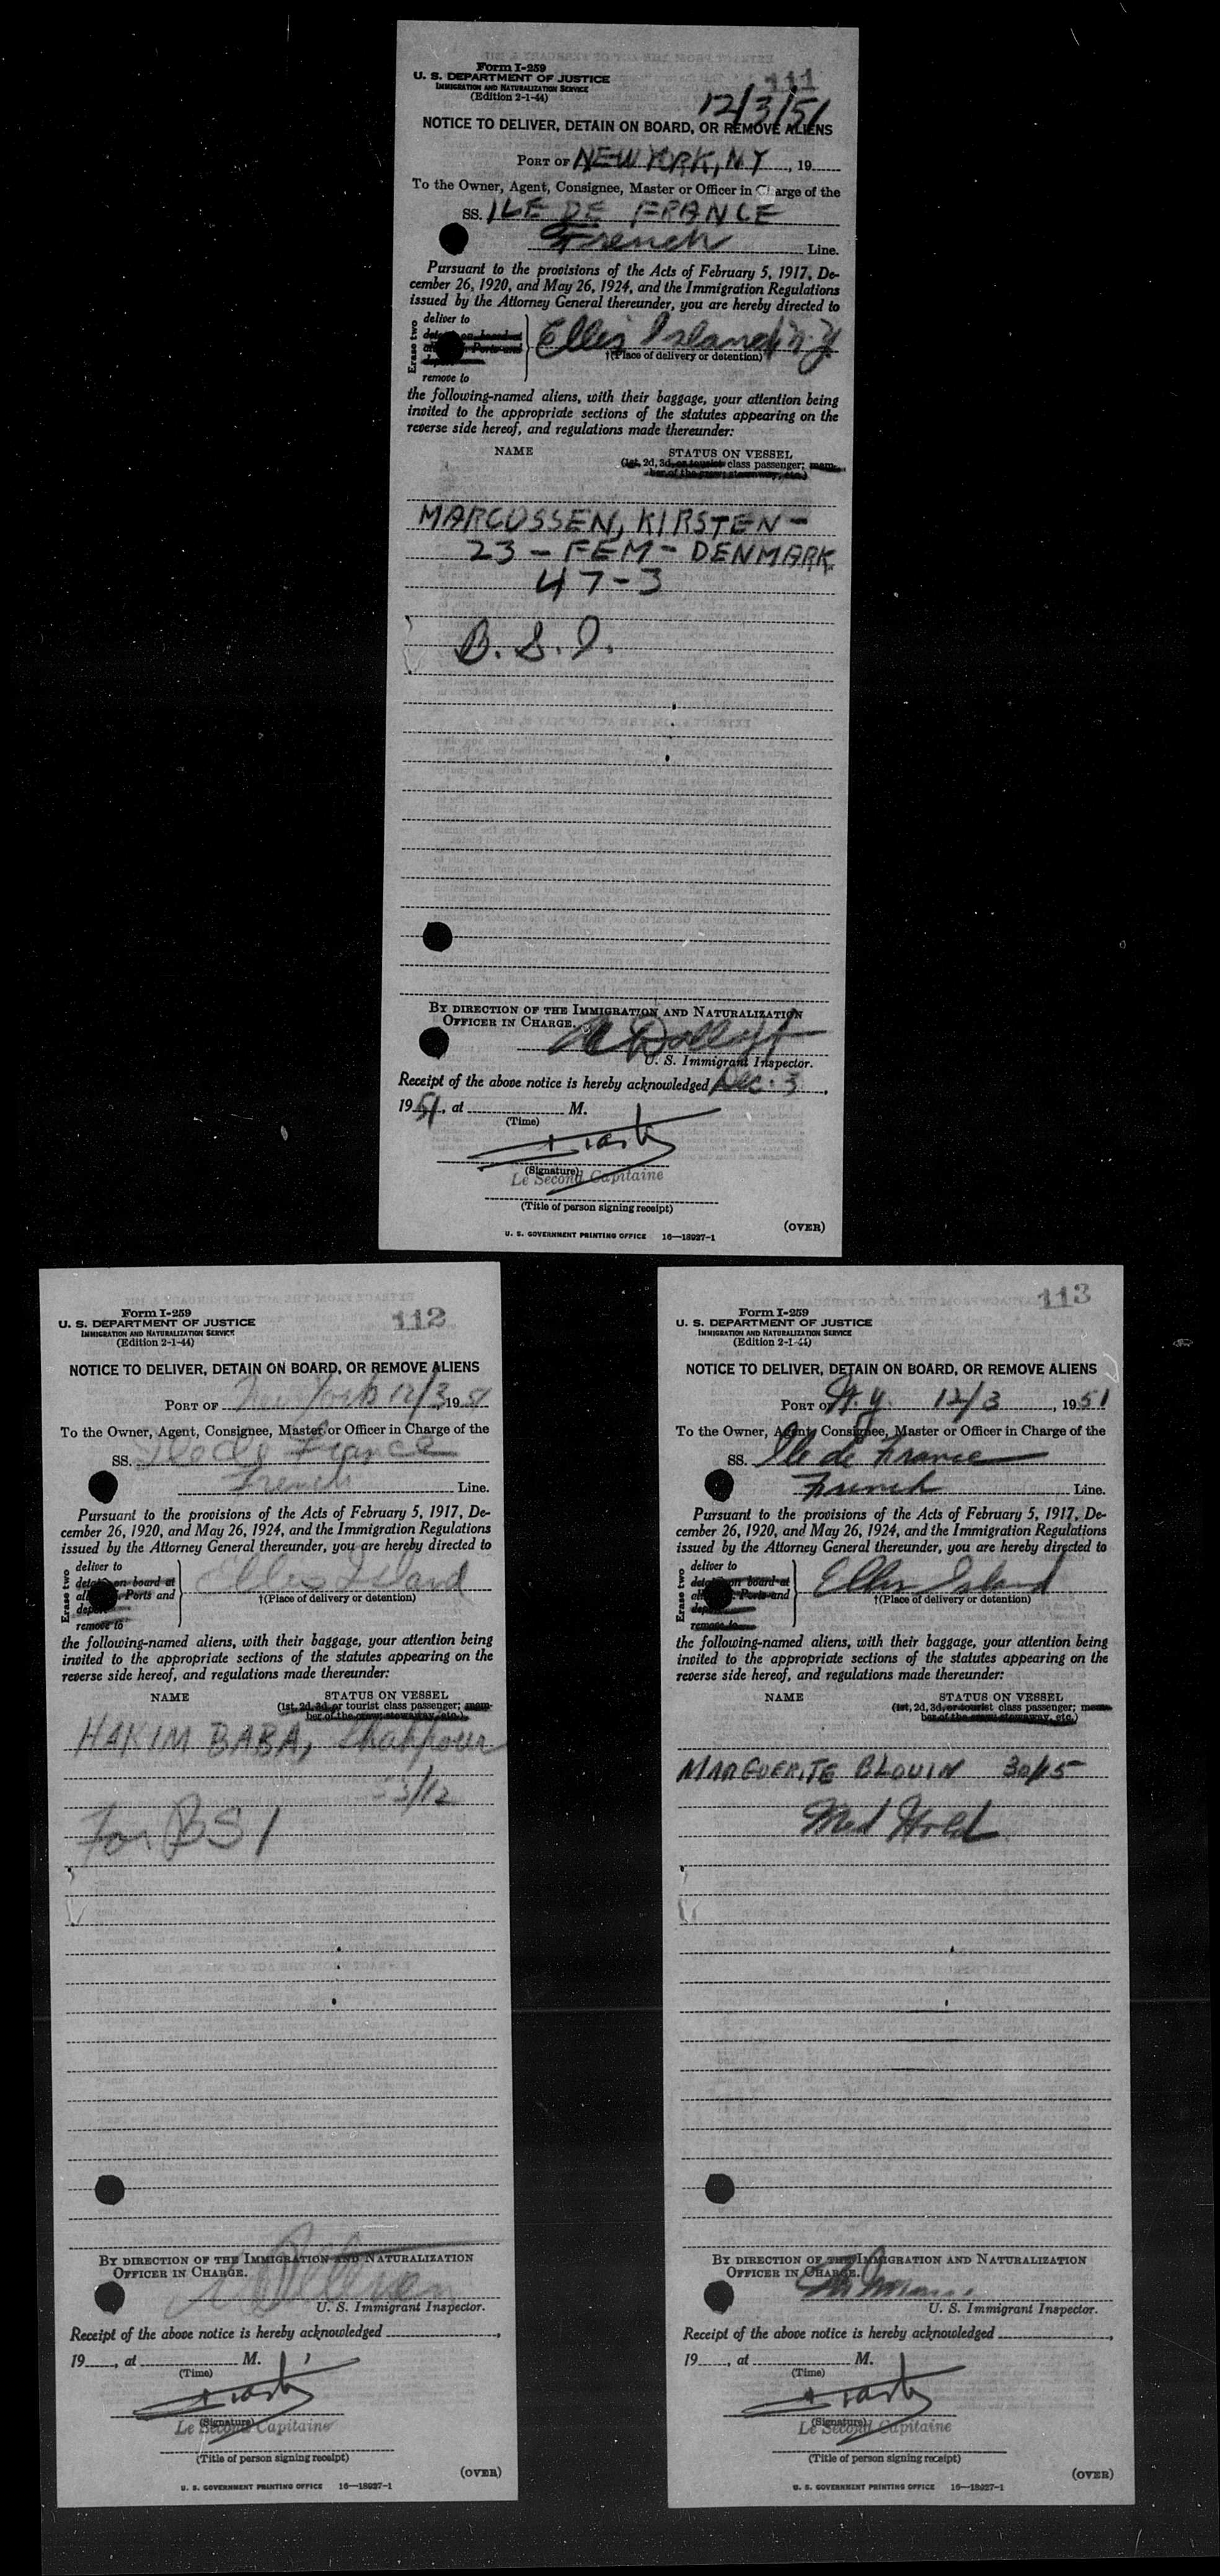 111
Form I-259
U. S. DEPARTMENT OF JUSTICE
IMMIGRATION AND NATURALIZATION SERVICE
(Edition 2-1-44)
12/3/51
NOTICE TO DELIVER, DETAIN ON BOARD, OR REMOVE ALIENS
PORT OF NEW YORK, NY, 19
To the Owner, Agent, Consignee, Master or Officer in Charge of the
SS. ILE DE FRANCE
French Line.
Pursuant to the provisions of the Acts of February 5, 1917, De-
cember 26, 1920, and May 26, 1924, and the Immigration Regulations
issued by the Attorney General thereunder, you are hereby directed to
Erase two
deliver to
Ports and
remove to
Ellis Island, N.Y.
†(Place of delivery or detention)
the following-named aliens, with their baggage, your attention being
invited to the appropriate sections of the statutes appearing on the
reverse side hereof, and regulations made thereunder:
NAME STATUS ON VESSEL
(1st, 2d, 3d, or tourist class passenger; mem-
ber of the crew; stowaway, etc.)
MARCUSSEN, KIRSTEN -
23 - FEM - DENMARK
47-3
B. S. I.
BY DIRECTION OF THE IMMIGRATION AND NATURALIZATION
OFFICER IN CHARGE.
U. S. Immigrant Inspector.
Receipt of the above notice is hereby acknowledged Dec. 3,
1951, at M.
(Time)
(Signature)
Le Second Capitaine
(Title of person signing receipt)
(OVER)
U. S. GOVERNMENT PRINTING OFFICE 16—18927-1
112
Form I-259
U. S. DEPARTMENT OF JUSTICE
IMMIGRATION AND NATURALIZATION SERVICE
(Edition 2-1-44)
NOTICE TO DELIVER, DETAIN ON BOARD, OR REMOVE ALIENS
PORT OF New York 12/3, 1951
To the Owner, Agent, Consignee, Master or Officer in Charge of the
SS. Ile de France
French Line.
Pursuant to the provisions of the Acts of February 5, 1917, De-
cember 26, 1920, and May 26, 1924, and the Immigration Regulations
issued by the Attorney General thereunder, you are hereby directed to
Erase two
deliver to
on board at
Ports and
remove to
Ellis Island
†(Place of delivery or detention)
the following-named aliens, with their baggage, your attention being
invited to the appropriate sections of the statutes appearing on the
reverse side hereof, and regulations made thereunder:
NAME STATUS ON VESSEL
(1st, 2d, 3d, or tourist class passenger; mem-
ber of the crew; stowaway, etc.)
HAKIM BABA,
For BSI
BY DIRECTION OF THE IMMIGRATION AND NATURALIZATION
OFFICER IN CHARGE.
U. S. Immigrant Inspector.
Receipt of the above notice is hereby acknowledged
19, at M.
(Time)
(Signature)
Le Second Capitaine
(Title of person signing receipt)
(OVER)
U. S. GOVERNMENT PRINTING OFFICE 16—18927-1
113
Form I-259
U. S. DEPARTMENT OF JUSTICE
IMMIGRATION AND NATURALIZATION SERVICE
(Edition 2-1-44)
NOTICE TO DELIVER, DETAIN ON BOARD, OR REMOVE ALIENS
PORT OF N.Y. 12/3, 1951
To the Owner, Agent, Consignee, Master or Officer in Charge of the
SS. Ile de France
French Line.
Pursuant to the provisions of the Acts of February 5, 1917, De-
cember 26, 1920, and May 26, 1924, and the Immigration Regulations
issued by the Attorney General thereunder, you are hereby directed to
Erase two
deliver to
on board at
Ports and
remove to
Ellis Island
†(Place of delivery or detention)
the following-named aliens, with their baggage, your attention being
invited to the appropriate sections of the statutes appearing on the
reverse side hereof, and regulations made thereunder:
NAME STATUS ON VESSEL
(1st, 2d, 3d, or tourist class passenger; mem-
ber of the crew; stowaway, etc.)
MARGUERITE BLOUIN 30/15
Med Hold
BY DIRECTION OF THE IMMIGRATION AND NATURALIZATION
OFFICER IN CHARGE.
U. S. Immigrant Inspector.
Receipt of the above notice is hereby acknowledged
19, at M.
(Time)
(Signature)
Le Second Capitaine
(Title of person signing receipt)
(OVER)
U. S. GOVERNMENT PRINTING OFFICE 16—18927-1